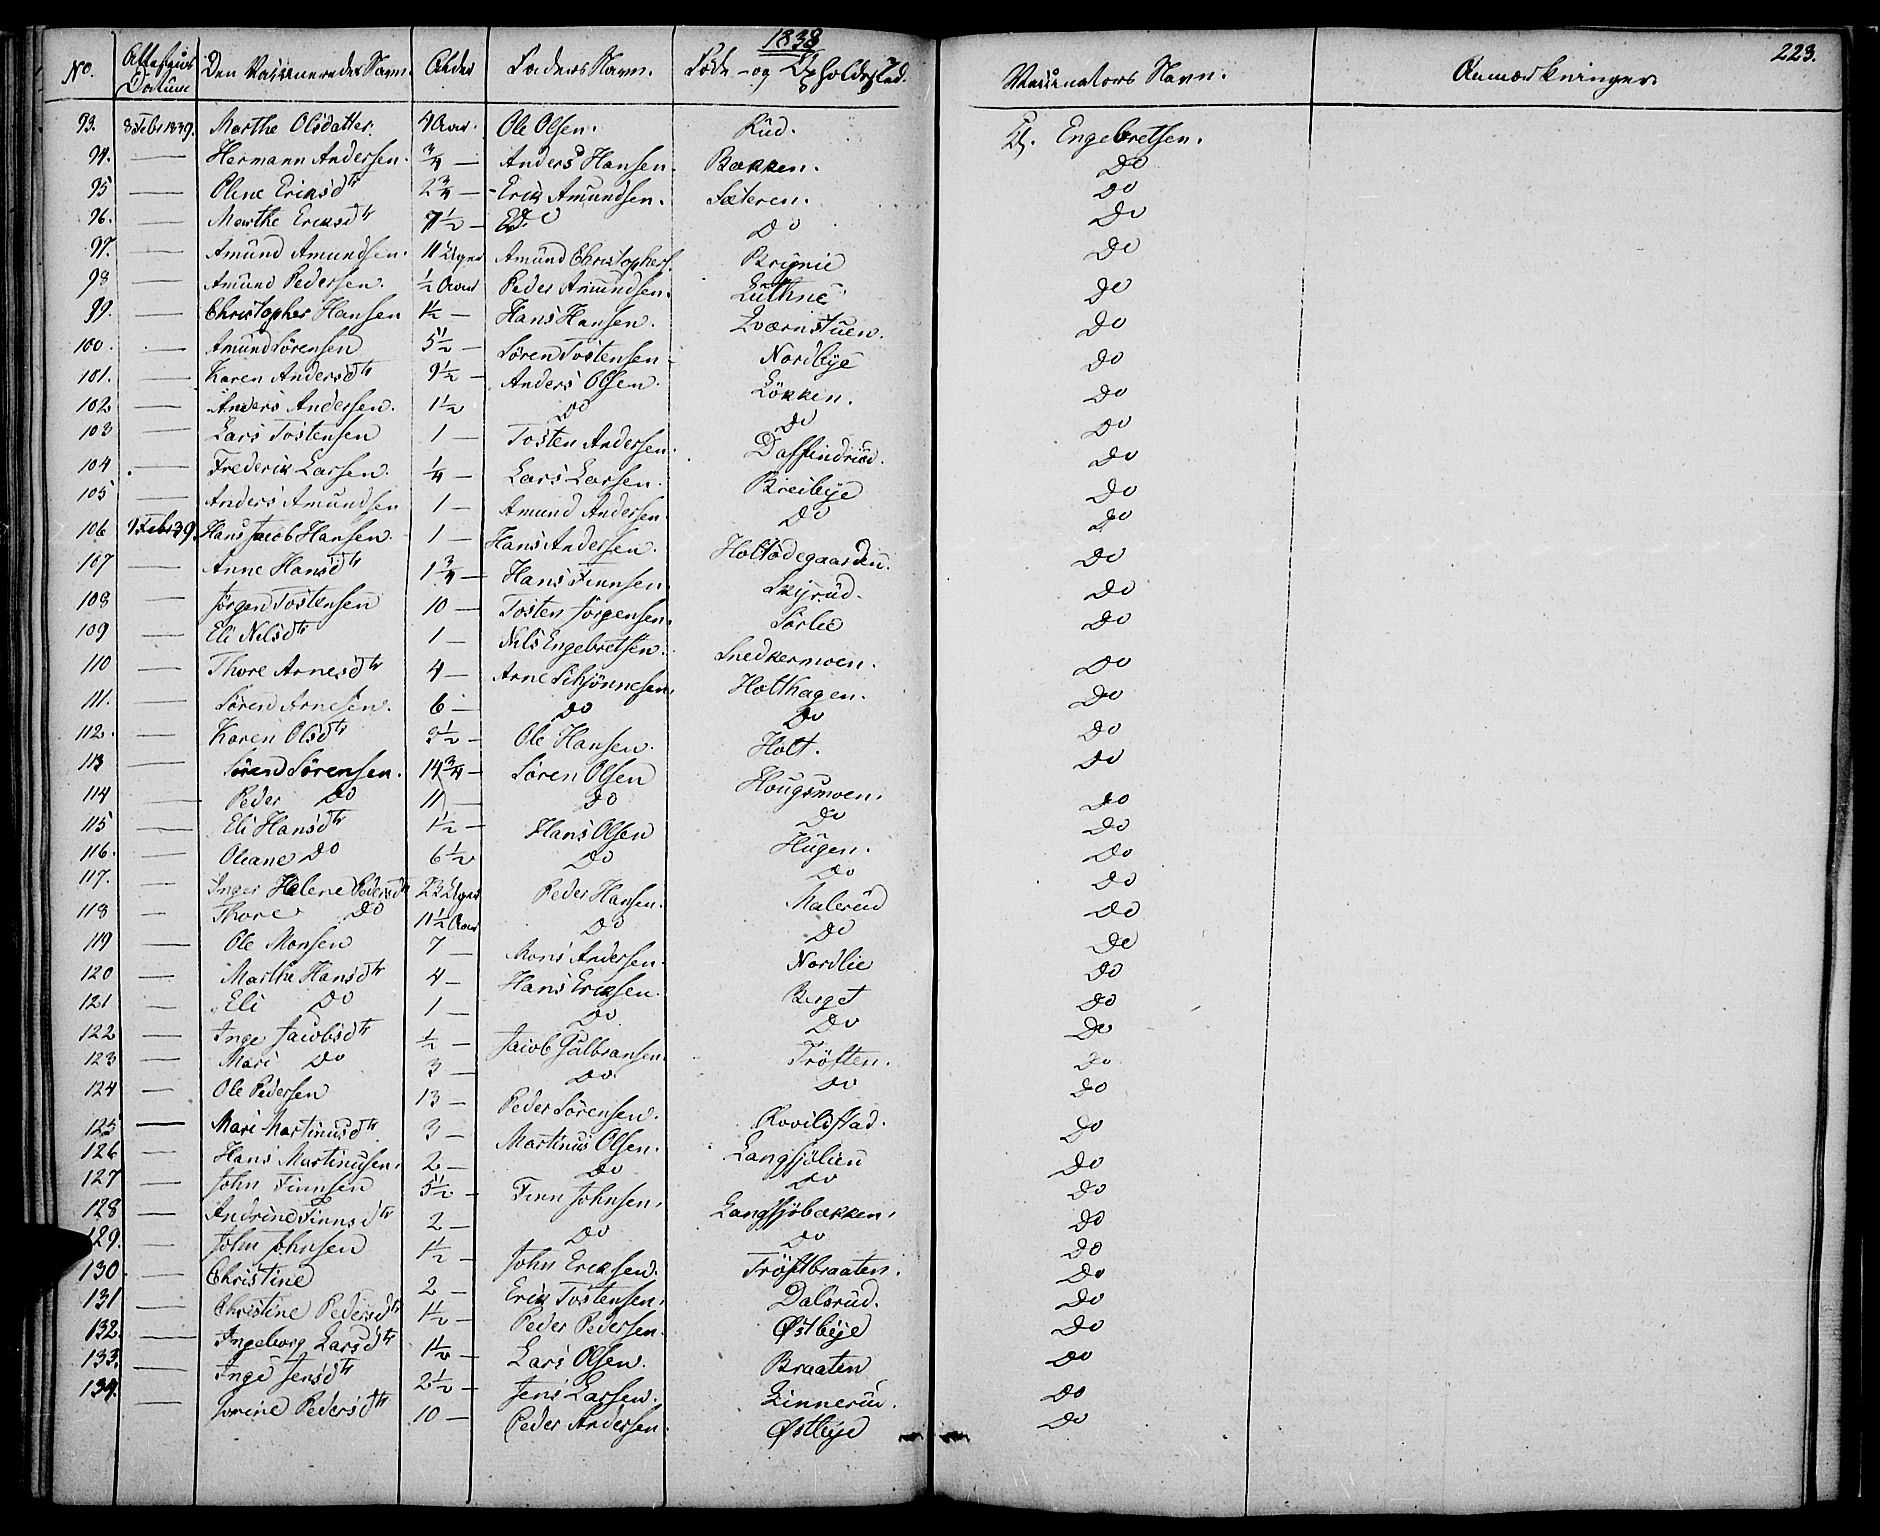 1838
223.
No. Attestens Datum Den Vaccineredes Navn. Alder Faders Navn. Føde- og Opholdsstad. Vaccinators Navn. Anmærkninger.
93. 8 Febr 1839. Marthe Olsdatter. 4 Aar. Ole Olsen. Rud. Engebretsen.
94. — Hermann Andersen. 3/4 — Anders Hansen. Bækken. Do
95 — Oline Eriksdtr 2 3/4 — Erik Amundsen. Sæteren. Do
96. — Marthe Eriksdtr 7 1/2 — Do Do Do
97. — Amund Amundsen. 11 Uger Amund Christophers. Do
98 — Amund Pedersen. 1/2 Aar Peder Amundsen. Do
99. — Christopher Hansen 1 1/2 — Hans Hansen. Qværnstuen. Do
100. — Amund Sørensen 5 1/2 — Søren Tostensen — Nordbye Do
101. — Karen Andersdtr 9 1/2 — Anders Olsen. Løkken. Do
102 — Anders Andersen. 1 1/2 Do Do Do
103 — Lars Tostensen 1 — Tosten Andersen. Daffindrud. Do
104 — Frederik Larsen. 1/4 — Lars Larsen. Breibye Do
105 — Anders Amundsen 1 — Amund Andersen. Do Do
106 9 Febr 39. Hans Jacob Hansen 1 — Hans Andersen. Holtødegaarden. Do
107 — Anne Hansdtr 1 3/4 — Hans Finnsen. Skyrud. Do
108 — Jørgen Tostensen 10 — Tosten Jørgensen. Sørlie Do
109 — Eli Nilsdtr 1 — Nils Engebretsen. Snedkermoen. Do
110 — Thore Arnesdtr 4 — Arne Schjønnesen. Holthagen. Do
111. — Søren Arnesen. 6 — Do Do Do
112. — Karen Olsdtr 3 1/2 — Ole Hansen. Holt. Do
113 — Søren Sørensen. 14 3/4 — Søren Olsen Hougsmoen. Do
114 — Peder Do 11 — Do Do Do
115 — Eli Hansdtr 1 1/2 — Hans Olsen Hugen. Do
116. — Oleane Do 6 1/2 Do Do Do
117. — Inger Helene Pedersdtr 23 Uger Peder Hansen. Malerud Do
118 — Thore Do 11 1/2 Aar Do Do Do
119 — Ole Monsen 7 — Mons Andersen. Nordlie Do
120 — Marthe Hansdtr 4 — Hans Eriksen. Berget Do
121 — Eli Do 1 — Do Do Do
122 — Inge Jacobsdtr 1/2 — Jacob Gulbransen. Trøften. Do
123 — Mari Do 3 — Do Do Do
124 — Ole Pedersen 13 — Peder Sørensen. Rovildstad. Do
125 — Mari Martinusdtr 3 — Martinus Olsen. Langsjølien Do
126 — Hans Martinusen. 2 — Do Do Do
127 — John Finnsen 5 1/2 — Finn Johnsen. Langsjøbækken. Do
128 — Andrine Finnsdtr 2 — Do Do Do
129. — John Johnsen 1 1/2 — John Eriksen. Trøftbraaten. Do
130 — Christine 2 — Erik Tostensen. Dalsrud. Do
131 — Christine Pedersdtr 1 1/2 — Peder Pedersen. Østbye Do
132 — Ingeborg Larsdtr 1 1/2 — Lars Olsen. Braaten Do
133. — Inge Jensdtr 2 1/2 — Jens Larsen. Linnerud. Do
134. — Sorine Pedersdtr 10 — Peder Andersen. Østbye Do